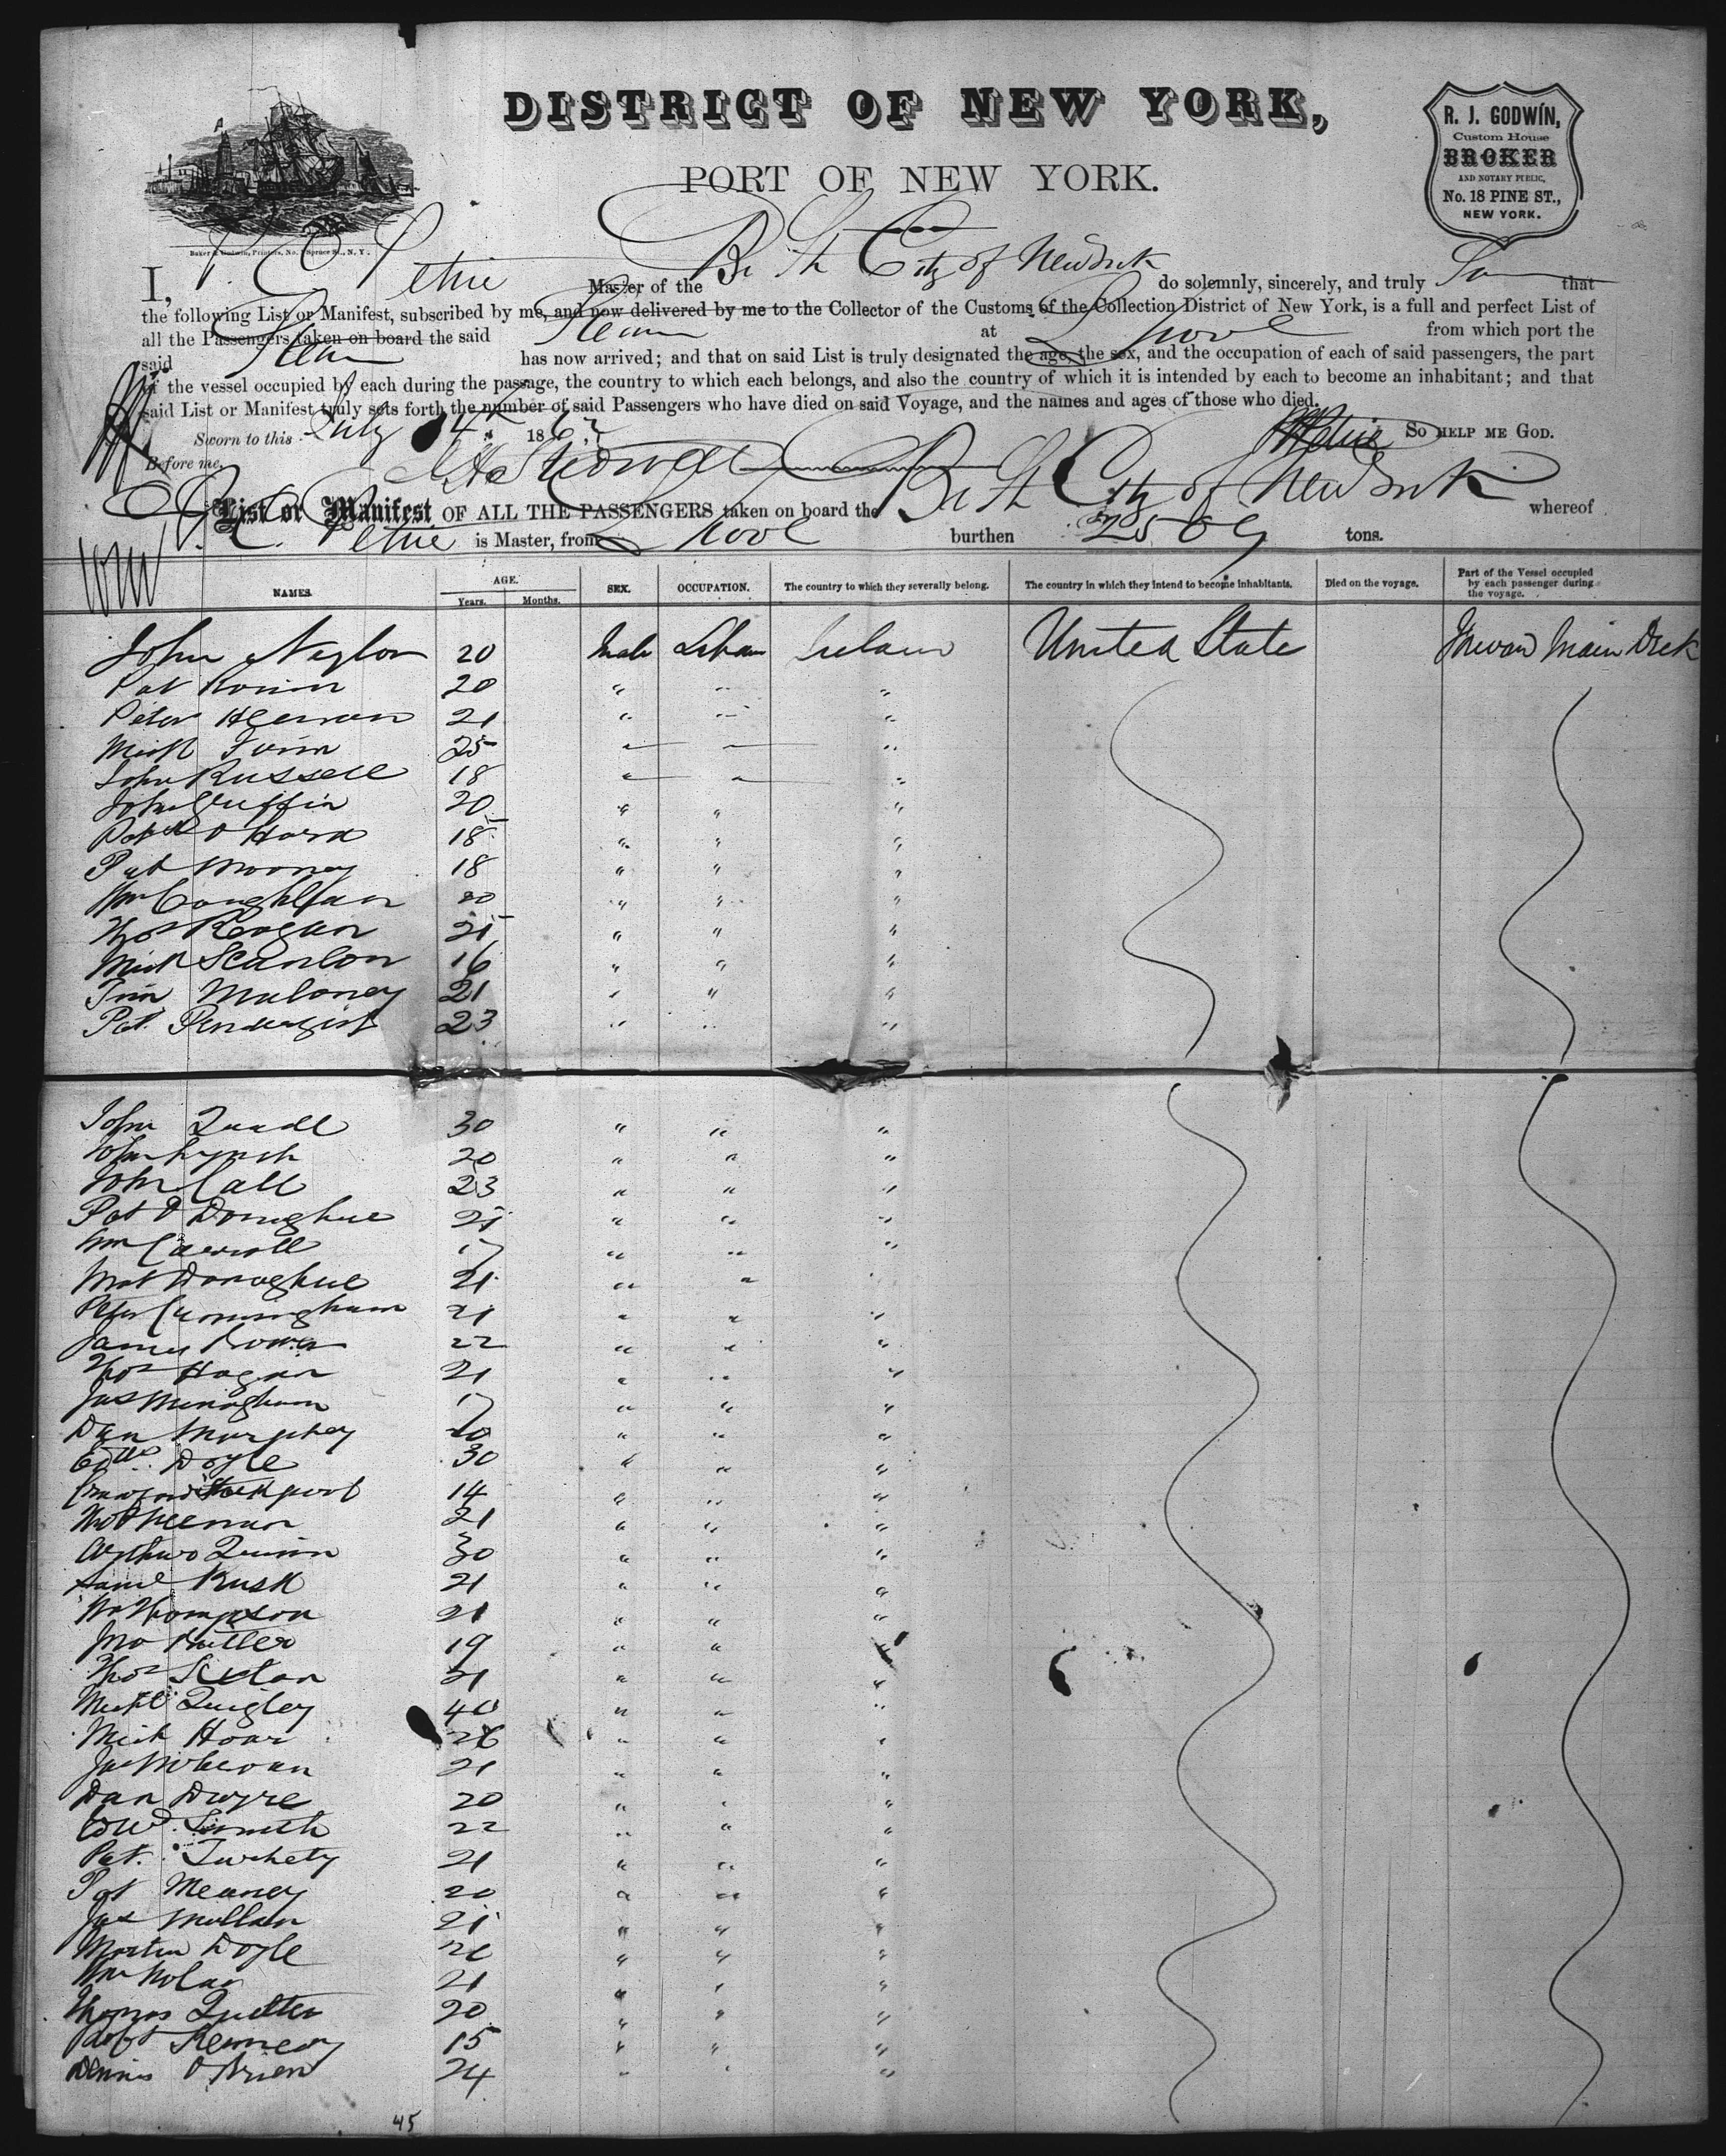 DISTRICT OF NEW YORK,
PORT OF NEW YORK.
R. J. GODWIN,
Custom House
BROKER
AND NOTARY PUBLIC,
No. 18 PINE ST.,
NEW YORK.
Baker & Godwin, Printers, No. 1 Spruce St., N. Y.
I, Petrie Master of the Br St City of New York do solemnly, sincerely, and truly that
the following List or Manifest, subscribed by me, and now delivered by me to the Collector of the Customs of the Collection District of New York, is a full and perfect List of
all the Passengers taken on board the said Steam at L'pool from which port the
said Steam has now arrived; and that on said List is truly designated the age, the sex, and the occupation of each of said passengers, the part
of the vessel occupied by each during the passage, the country to which each belongs, and also the country of which it is intended by each to become an inhabitant; and that
said List or Manifest truly sets forth the number of said Passengers who have died on said Voyage, and the names and ages of those who died.
Sworn to this July 14 186 Petrie SO HELP ME GOD.
Before me,
List or Manifest OF ALL THE PASSENGERS taken on board the Br St City of New York whereof
Petrie is Master, from L'pool burthen tons.
NAMES. AGE. Years. Months. SEX. OCCUPATION. The country to which they severally belong. The country in which they intend to become inhabitants. Died on the voyage. Part of the Vessel occupied by each passenger during the voyage.
John Naylor 20 Male Ireland United State Main Deck
Pat 20 " " "
Peter 21 " " "
25 " " "
John Russell 18 " " "
John Griffin 20 " " "
O Hara 18 " " "
Pat Mooney 18 " " "
Wm Coughlan 20 " " "
Thos 21 " " "
Mick Scanlon 16 " " "
Tim Maloney 21 " " "
Pat. 23 " " "
John 30 " " "
John Lynch 20 " " "
John Call 23 " " "
Pat O Donoghue 21 " " "
Wm Carroll 17 " " "
Mat Donoghue 21 " " "
Peter Cunningham 21 " " "
James 22 " " "
Thos Hagan 21 " " "
Jas 17 " " "
Dan Murphy 20 " " "
Edwd. Doyle 30 " " "
14 " " "
21 " " "
Quinn 30 " " "
Saml Rusk 21 " " "
Wm Thompson 21 " " "
Jno Butler 19 " " "
Thos Sexton 21 " " "
Michl Quigley 40 " " "
Mick Hoar 26 " " "
21 " " "
Dan Dwyre 20 " " "
Edwd. Smith 22 " " "
Pat. 21 " " "
Pat Meaney 20 " " "
Jas Mullan 21 " " "
Martin Doyle " " "
Wm Nolan 21 " " "
Thomas Quilter 20 " " "
Robt Kennedy 15 " " "
Dennis O'Brien 24 " " "
45